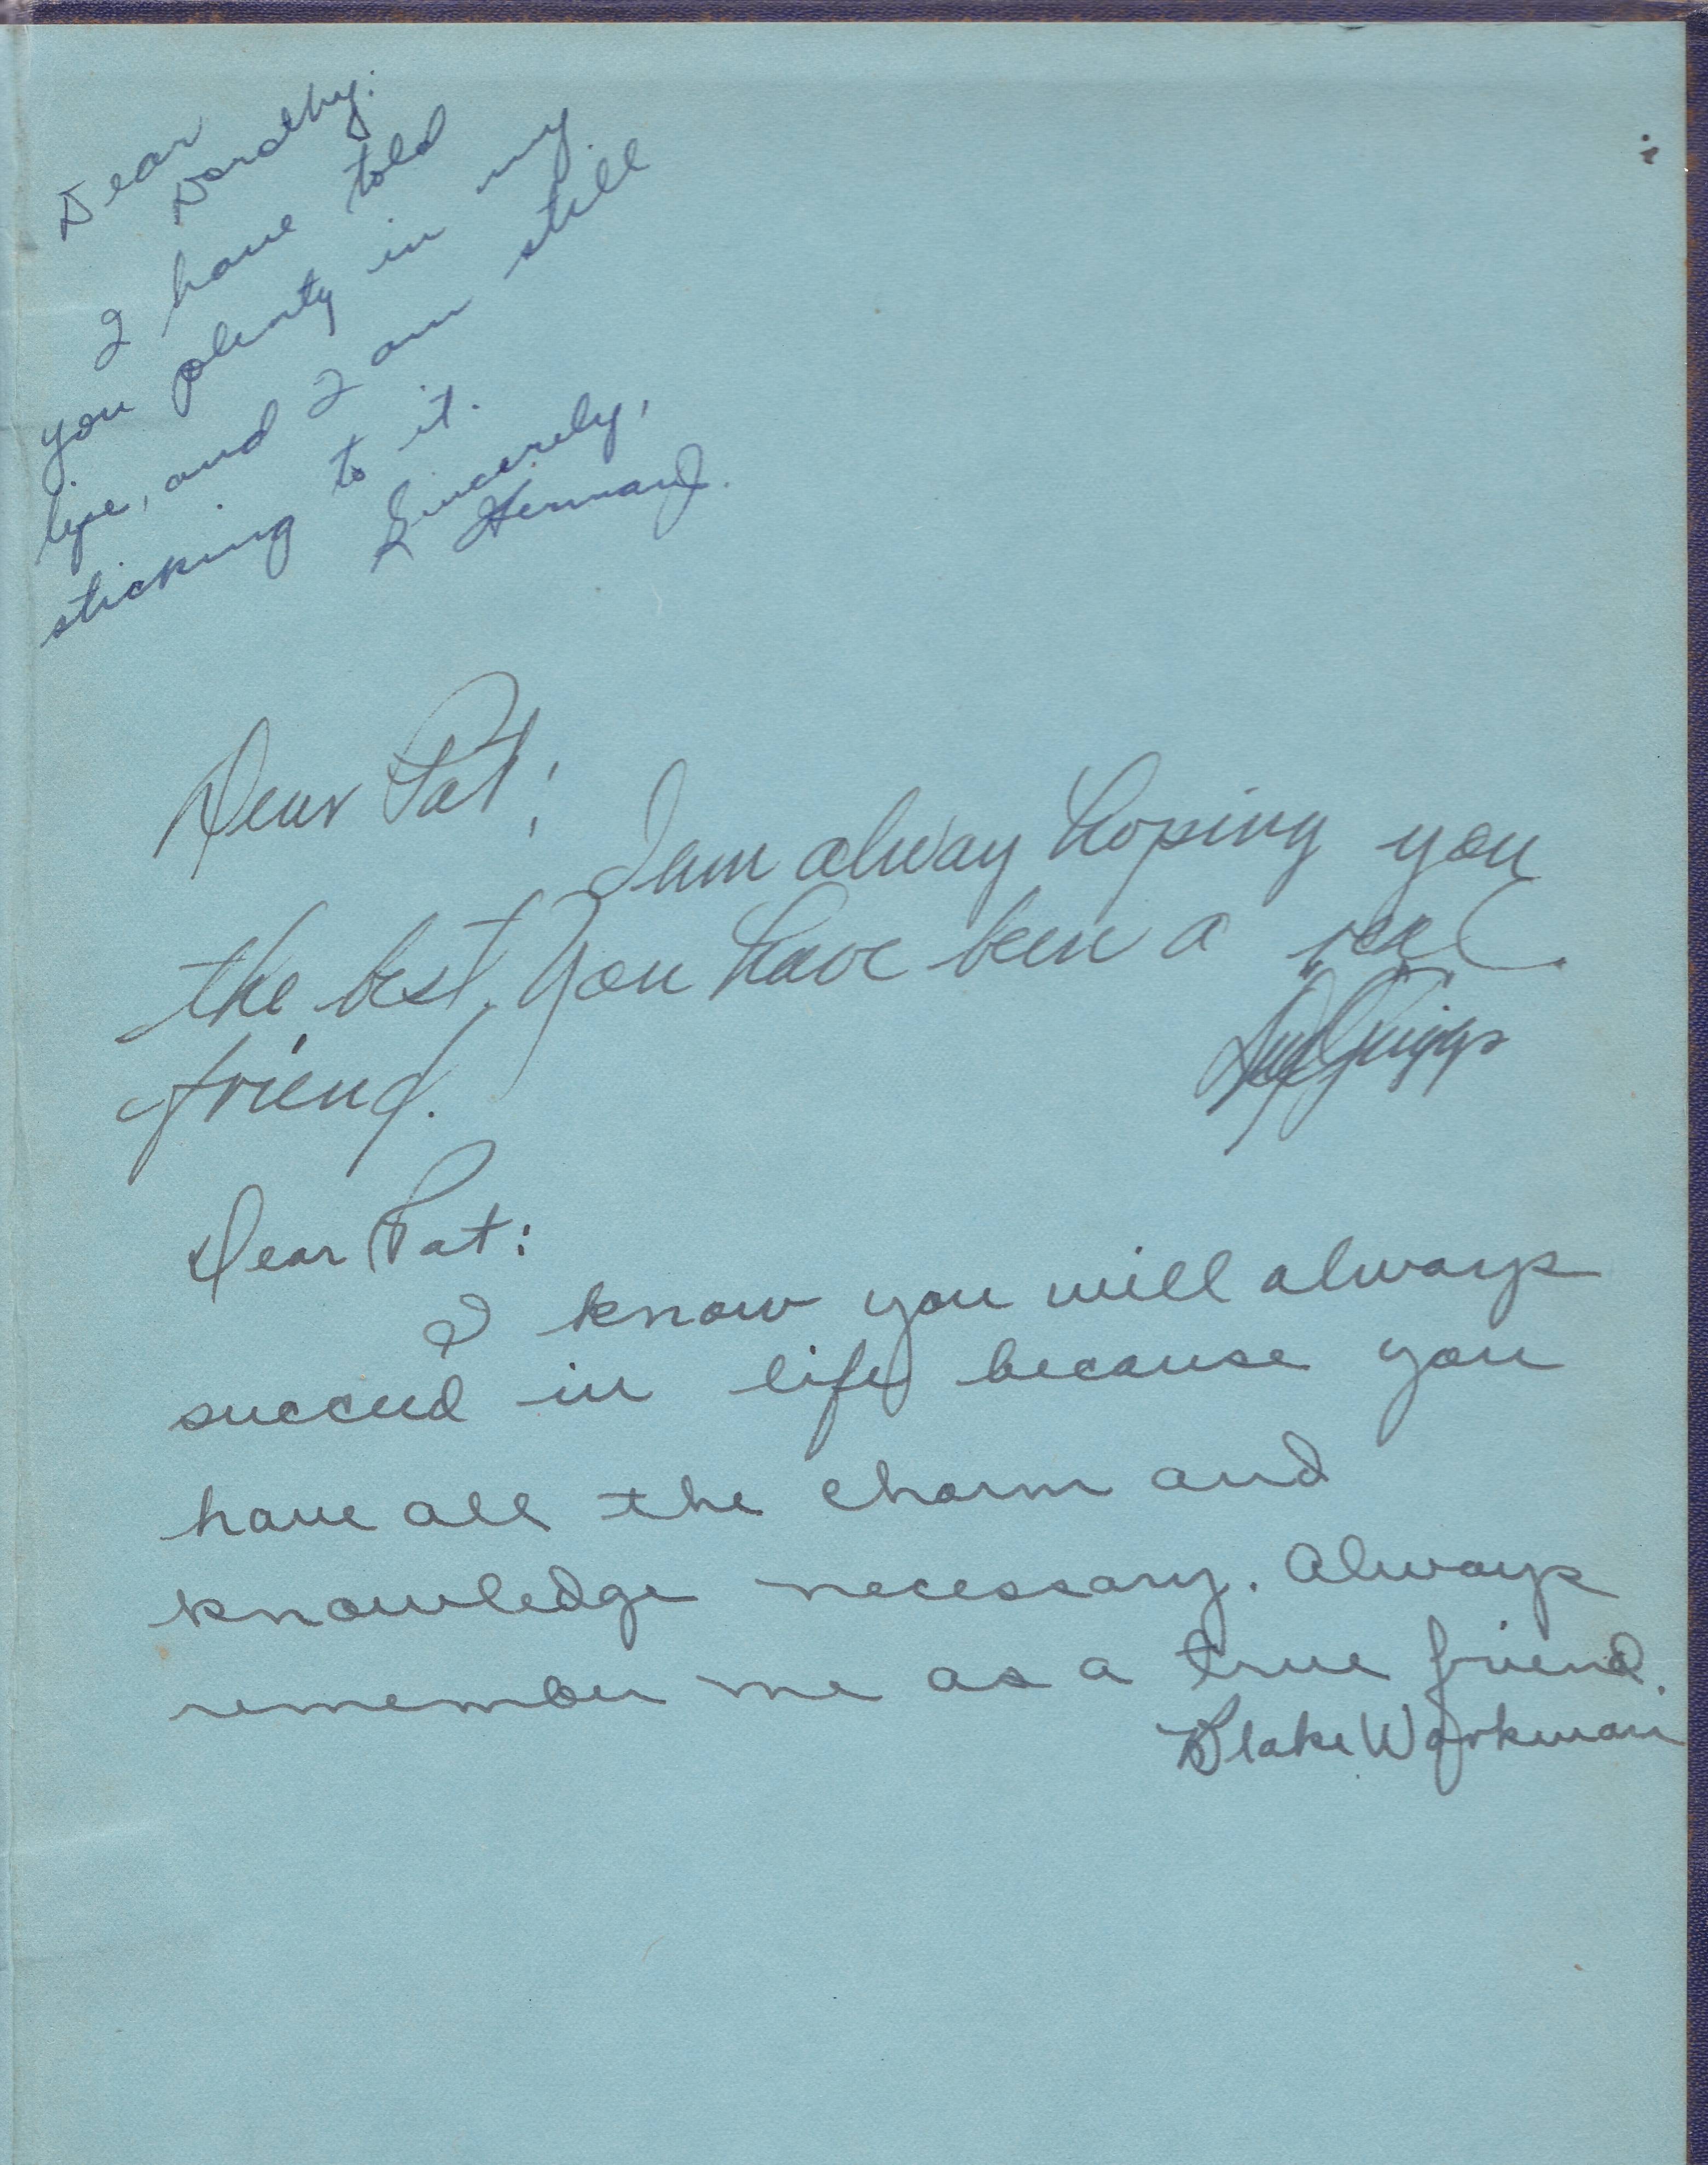 Dear
Dorothy:
I have told
you plenty in my
life, and I am still
sticking to it.
Sincerely,
Herman J.
Dear Pat:
I am alway hoping you
the best. You have been a real
friend.
Griggs
Dear Pat:
I know you will always
succeed in life because you
have all the charm and
knowledge necessary. Always
remember me as a true friend.
Blake Workman